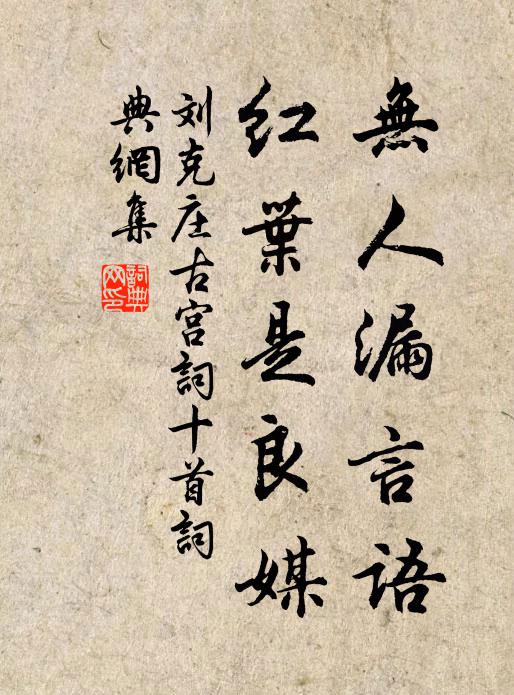 無人漏言語
紅葉是良媒
刘克庄古宫詞十首詞
典網集
詞典
网印